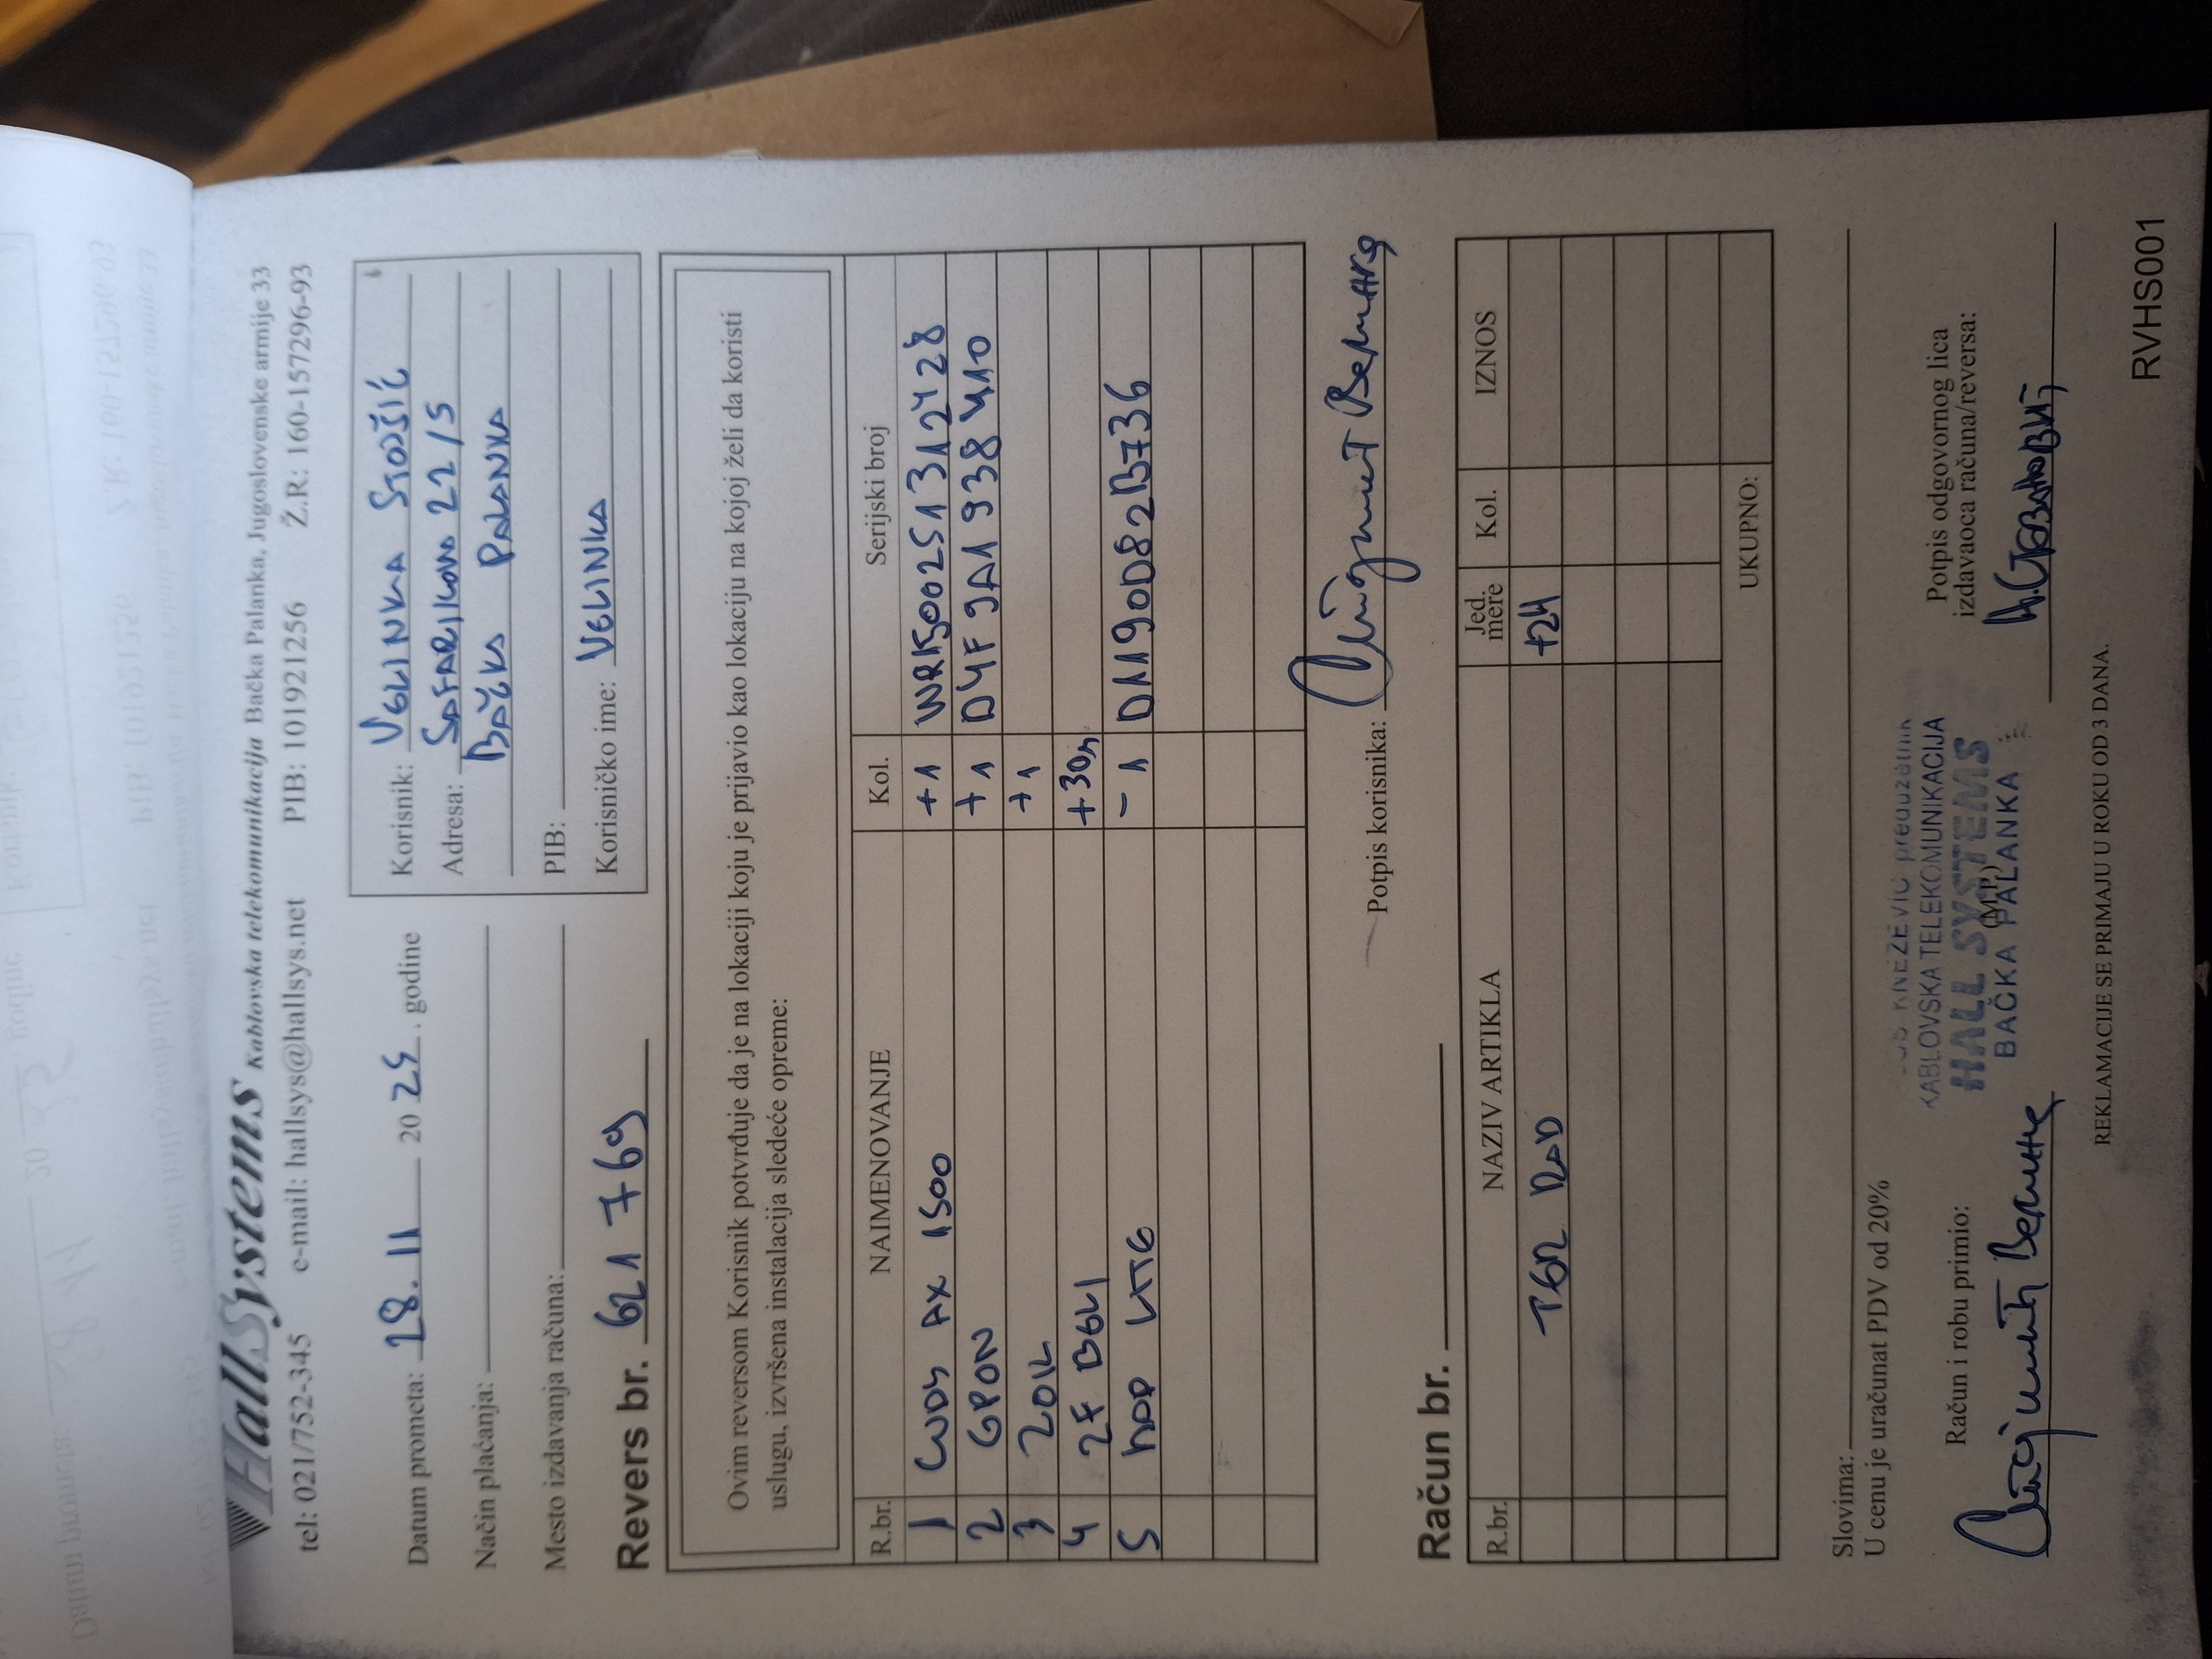 HallSystems Kablovska telekomunikacija Bačka Palanka, Jugoslovenske armije 33
tel: 021/752-345 e-mail: hallsys@hallsys.net PIB: 101921256 Ž.R.: 160-157296-93
Datum prometa: 28.11 2025. godine
Način plaćanja:
Mesto izdavanja računa:
Revers br. 621769
Korisnik: VELINKA STOŠIĆ
Adresa: ŠAFARIKOVA 22/5
BAČKA PALANKA
PIB:
Korisničko ime: VELINKA
Ovim reversom Korisnik potvrđuje da je na lokaciji koju je prijavio kao lokaciju na kojoj želi da koristi
uslugu, izvršena instalacija sledeće opreme:
R.br. NAIMENOVANJE Kol. Serijski broj
1 CUDY AX 1500 +1 WR1500251312428
2 GPON +1 D4F9A1938410
3 ZOIL +1
4 2F BELI +30m
5 HAP LITE -1 D1190D82B736
Potpis korisnika:
Račun br.
R.br. NAZIV ARTIKLA Jed. mere Kol. IZNOS
TER RAD +2H
UKUPNO:
Slovima:
U cenu je uračunat PDV od 20%
KNEŽEVIĆ preduzetnik
KABLOVSKA TELEKOMUNIKACIJA
HALL SYSTEMS
(M.P.)
BAČKA PALANKA
Račun i robu primio:
Potpis odgovornog lica
izdavaoca računa/reversa:
REKLAMACIJE SE PRIMAJU U ROKU OD 3 DANA.
RVHS001